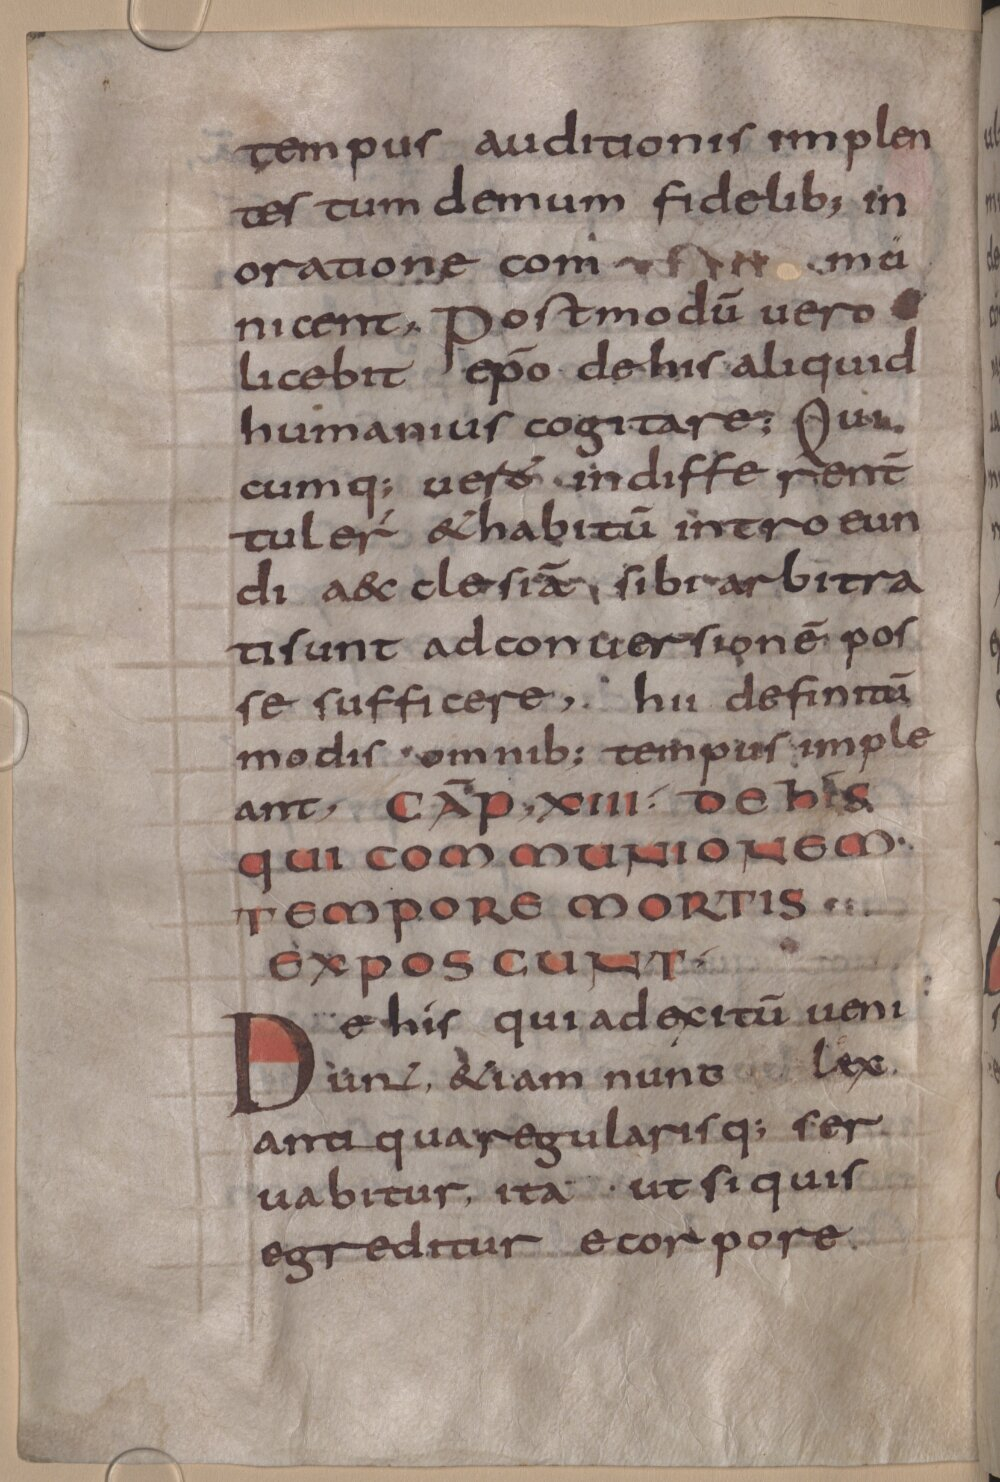 tempus auditionis implen
tes tum demum fidelib; in
oratione com mu
nicent, Postmodū uero
licebit ep̄o de his aliquid
humanius cogitare; Qui
cumq; uero indifferent̄
tuler̄ & habitū introeun
di a&clesiā sibi arbitra
ti sunt ad conuersionē pos
se sufficere, hii definitū
modis omnib; tempus imple
ant, CĀP, XIII. DE his
QUI COMMUNIONEM
TEMPORE MORTIS
EXPOSCUNT.
De his qui ad exitū ueni
unt, &iam nunc lex
anti qua regularisq; ser
uabitur, ita ut si quis
egreditur e corpore